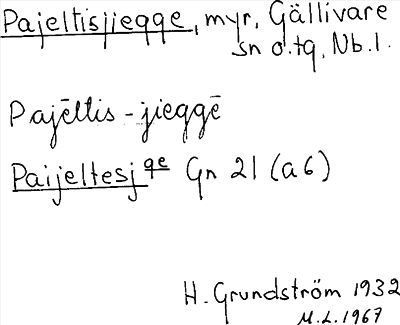 Pajeltisjiegge, myr, Gällivare
sn o.tg, Nb.l.
Pajēltis-jieggē
Paijeltesj ge Gn 21 (a6)
H. Grundström 1932
M.L. 1967